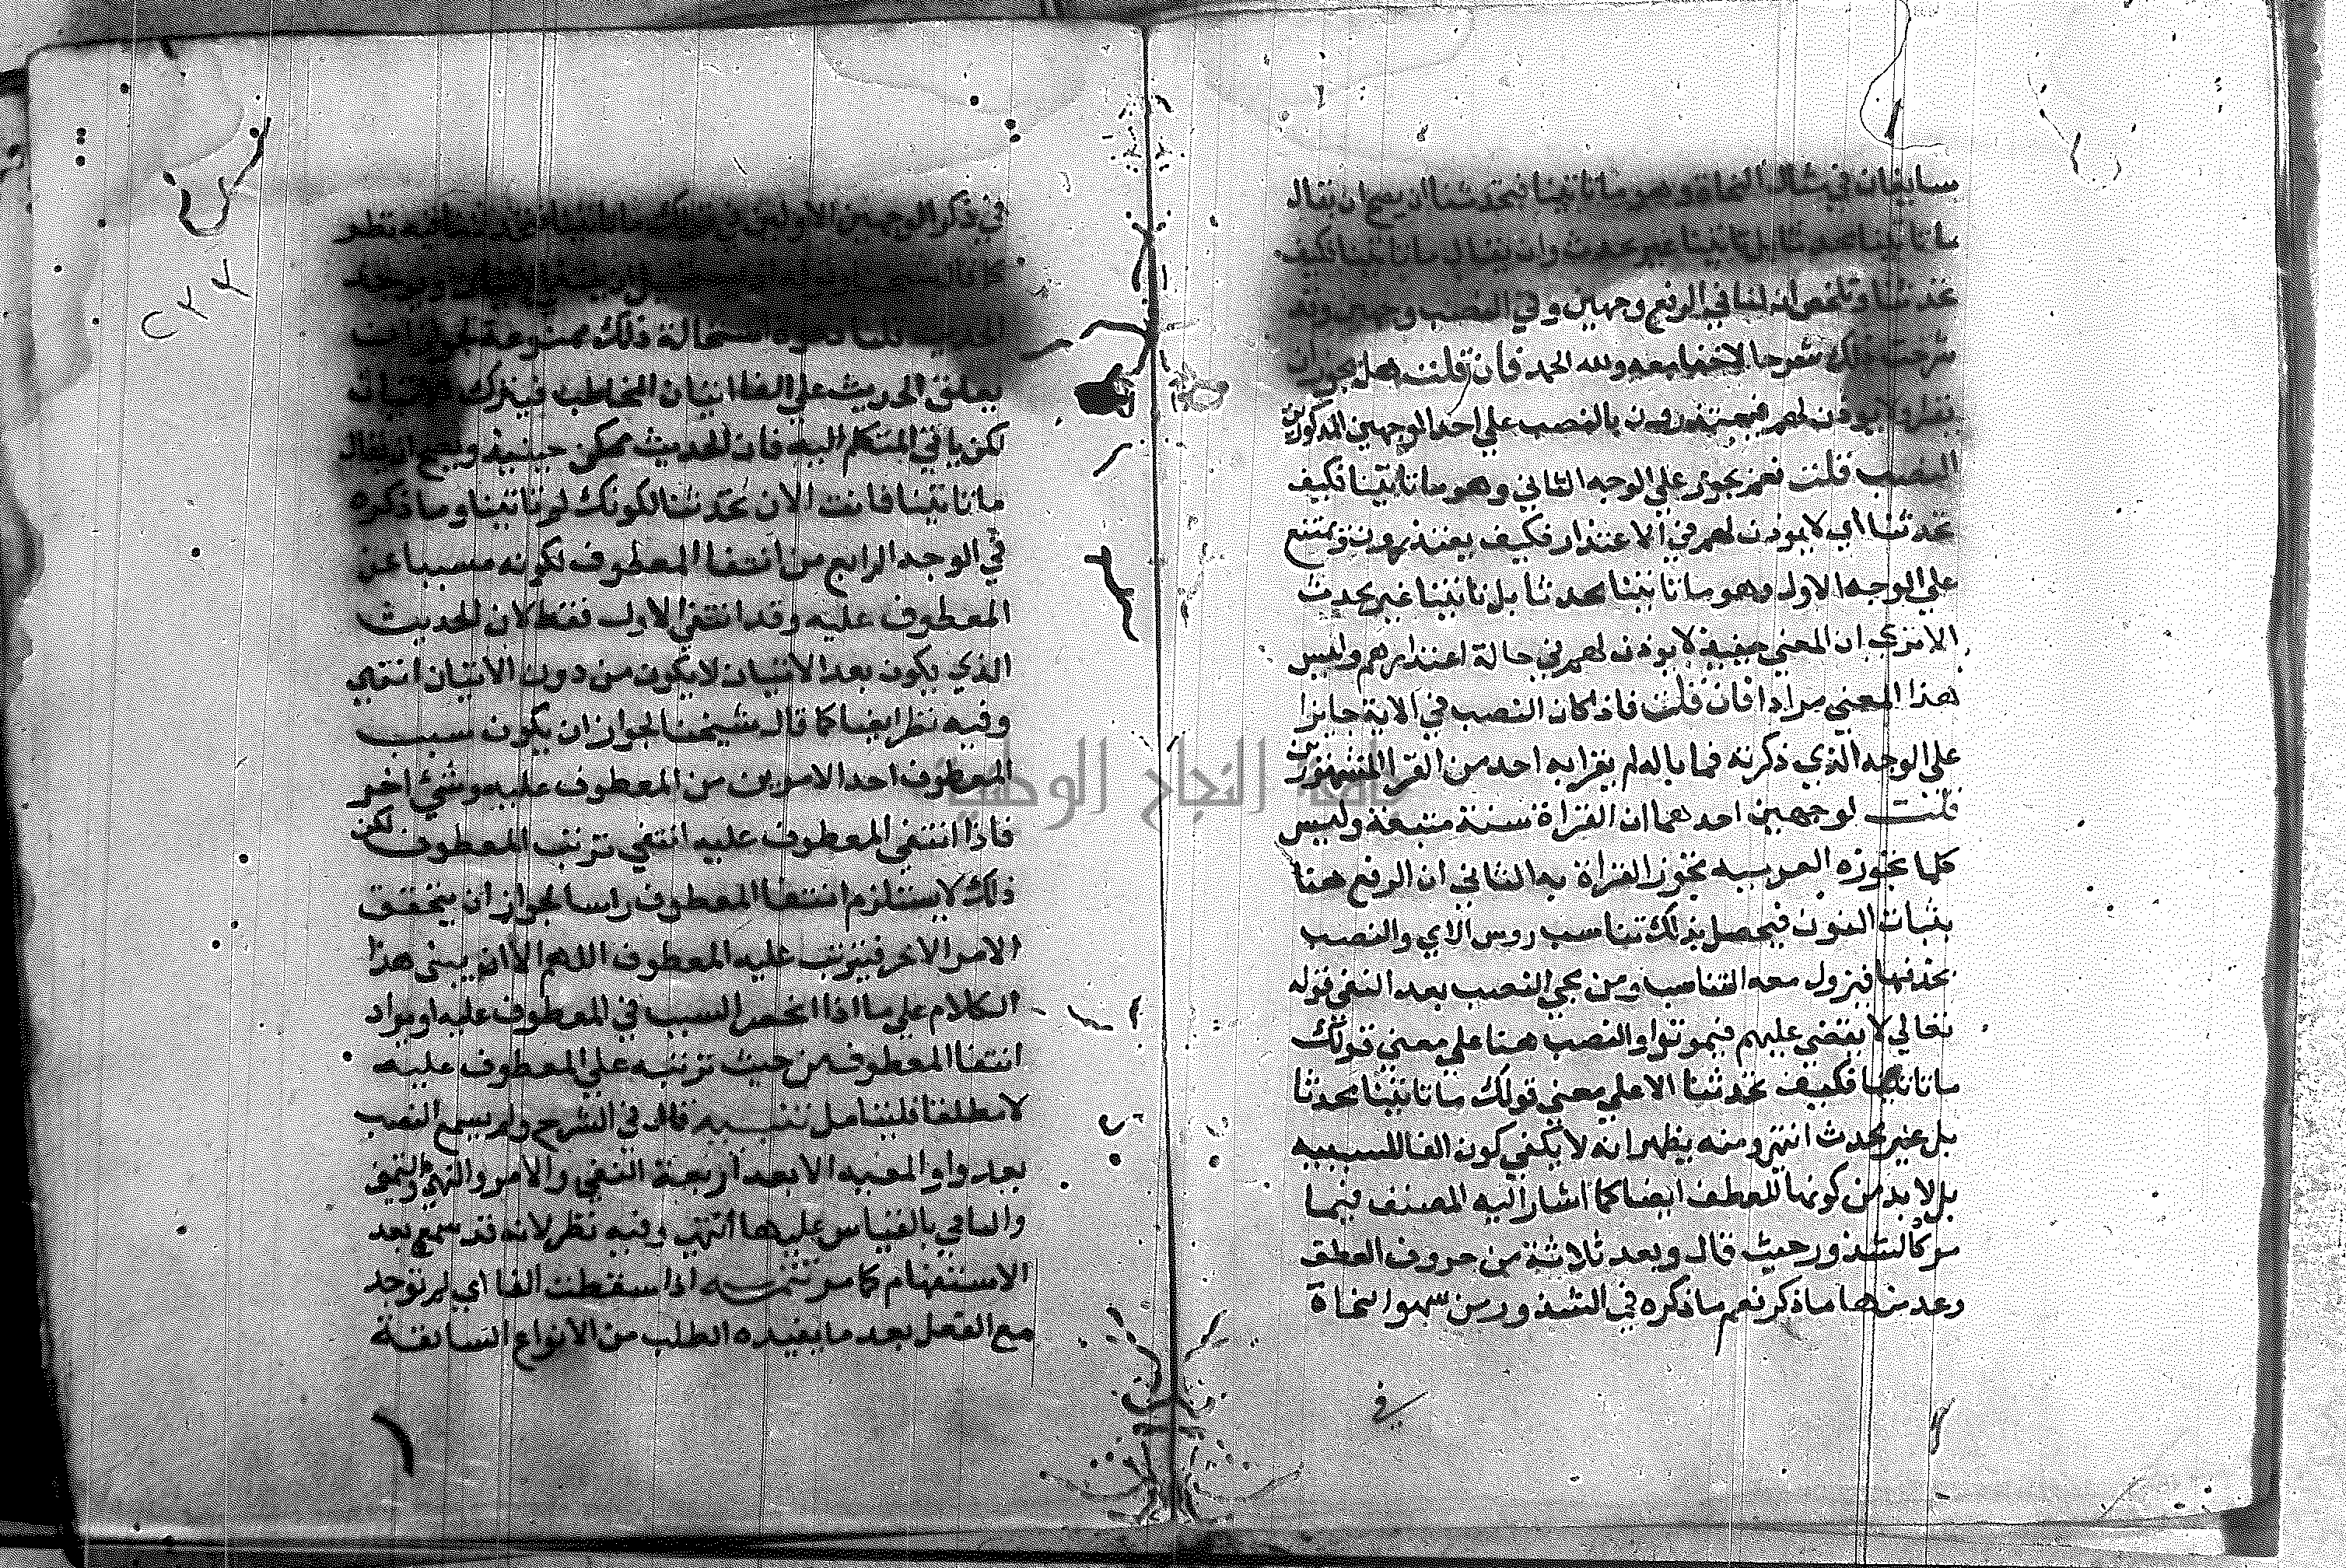 سايغان في مثال النحاة وهو ما تاتينا فتحدثنا اذ يصح ان يقال
ما تاتينا محدثا بل تاتينا غير محدث وان يقال ما تاتينا فكيف
تحدثنا وتلخص ان لنا في الرفع وجهين وفي النصب وجهين وقد
شرحت ذلك شرحا لا خفا معه ولله الحمد فان قلت هل يجوز ان
يقرا ولا يوذن لهم فيعتذرون بالنصب على احد الوجهين المذكورين
النصب قلت نعم يجوز على الوجه الثاني وهو ما تاتينا فكيف
تحدثنا اي لا يوذن لهم في الاعتذار فكيف يعتذرون ويمتنع
على الوجه الاول وهو ما تاتينا محدثا بل تاتينا غير محدث
الا تري ان المعني حينيذ لا يوذن لهم في حالة اعتذارهم وليس
هذا المعني مرادا فان قلت فاذا كان النصب في الاية جايزا
على الوجه الذي ذكرته فما باله لم يقرا به احد من القرا المشهورين
قلت لوجهين احدهما ان القراة سنة متبعة وليس
كلما تجوزه العربيه تجوز القراة به الثاني ان الرفع هنا
بثبات النون فيحصل بذلك تناسب روس الاي والنصب
بحذفها فيزول معه التناسب ومن مجي النصب بعد النفي قوله
تعالي لا يقضي عليهم فيموتوا والنصب هنا علي معني قولك
ما تاتينا فكيف تحدثنا الا علي معني قولك ما تاتينا محدثا
بل غير محدث انتهي ومنه يظهر انه لا يكفي كون الفا للسببيه
بل لا بد من كونها للعطف ايضا كما اشار اليه المصنف فيما
مر كالشذور حيث قال وبعد ثلاثة من حروف العطف
وعد منها ما ذكر نعم ما ذكره في الشذور من سهو النحاة
في
في ذكر الوجهين الاولين في قولك ما تاتينا
ذلك ممنوعة لجواز ان
يعلق الحديث علي انتفا اتيان المخاطب فيترك الاتيان
لكن ياتي المتكلم اليه فان الحديث ممكن حينيذ ويصح ان يقال
ما تاتينا فانت الان تحدثنا لكونك لم تاتينا وما ذكره
في الوجه الرابع من انتفا المعطوف لكونه مسببا عن
المعطوف عليه وقد انتفي الاول فقط لان الحديث
الذي يكون بعد الاتيان لا يكون من دون الاتيان انتهي
وفيه نظر ايضا كما قال شيخنا لجواز ان يكون سبب
المعطوف احد الامرين من المعطوف عليه وشيء اخر
فاذا انتفي المعطوف عليه انتفي ترتب المعطوف لكن
ذلك لا يستلزم انتفا المعطوف راسا لجواز ان يتحقق
الامر الاخر فيترتب عليه المعطوف اللهم الا ان يبني هذا
الكلام علي ما اذا انحصر السبب في المعطوف عليه او يراد
انتفا المعطوف من حيث ترتبه علي المعطوف عليه
لا مطلقا فليتامل تنبيه قال في الشرح ولم يسمع النصب
بعد واو المعيه الا بعد اربعة النفي والامر والنهي والتمني
والباقي بالقياس عليها انتهي وفيه نظر لانه قد سمع بعد
الاستفهام كما مر تتمه اذا سقطت الفا اي لم توجد
مع الفعل بعد ما يفيده الطلب من الانواع السابقة
جامعة النجاح الوطنية